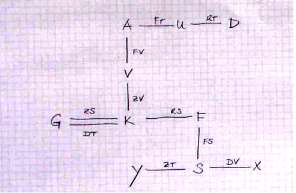 A FT U RT D
FV
V
ZV
G ZS K RS F
DT
FS
Y ZT S DV X